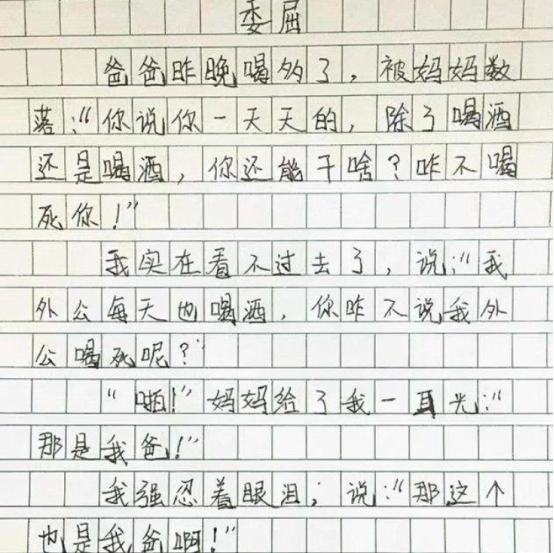 委屈
爸爸昨晚喝多了，被妈妈数
落：“你说你一天天的，除了喝酒
还是喝酒，你还能干啥？咋不喝
死你！”
我实在看不过去了，说：“我
外公每天也喝酒，你咋不说我外
公喝死呢？”
“啪！”妈妈给了我一耳光：“
那是我爸！”
我强忍着眼泪，说：“那这个
也是我爸啊！”